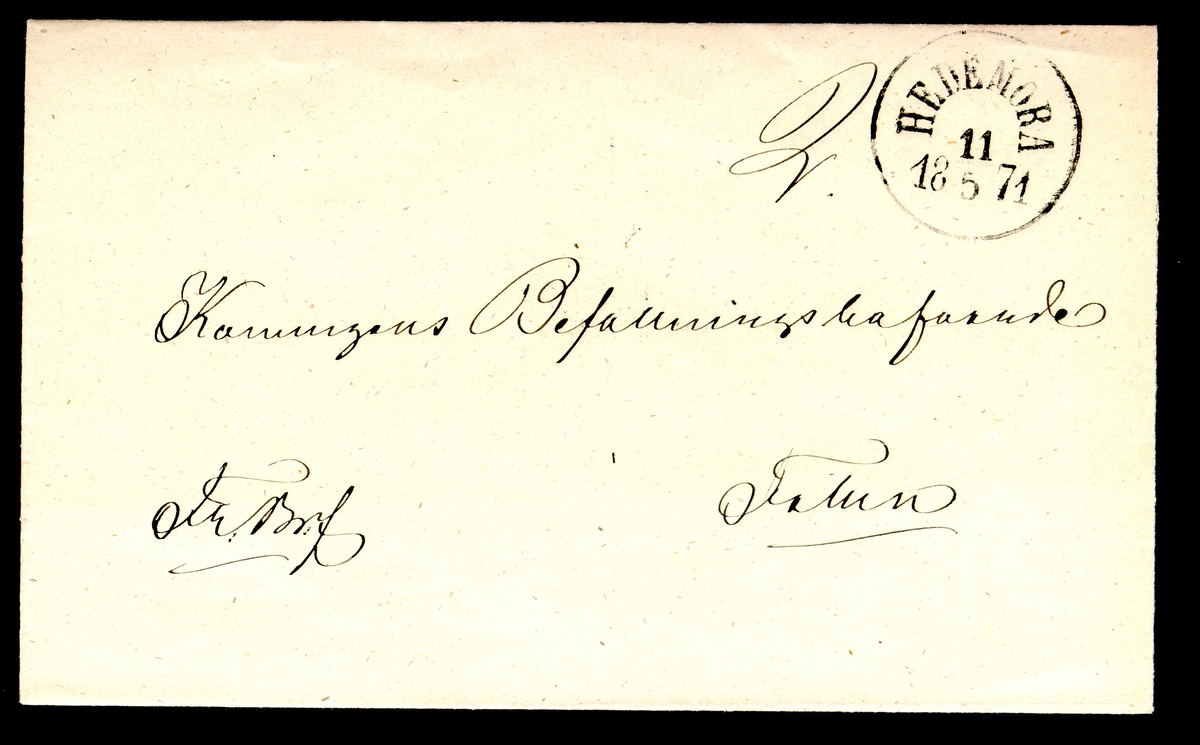 2.
HEDEMORA
11
18 5 71
Konungens Befallningshafvande
Fr. Brf
Falun